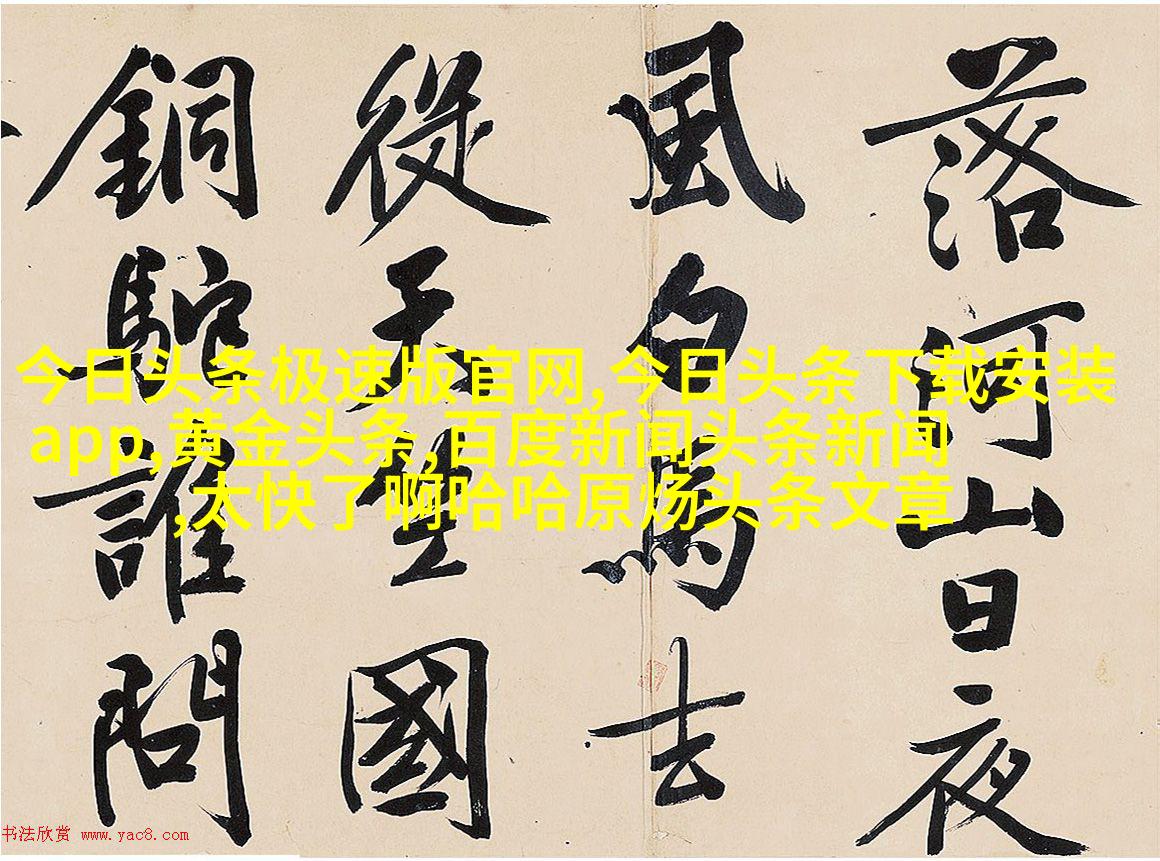 落河山日夜
風白馬去
從天竺國
銅駝誰問
今日头条极速版官网,今日头条下载安装
app,黄金头条,百度新闻头条新闻
,太快了啊哈哈原炀头条文章
书法欣赏 www.yac8.com